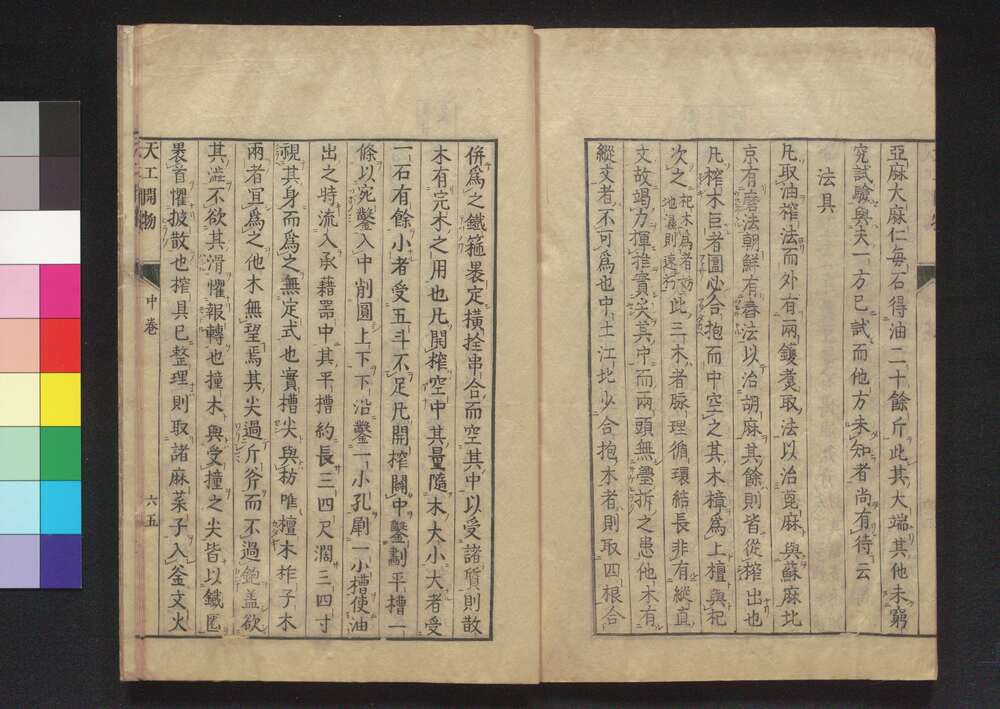 亞麻大麻仁每石得油二十餘斤此其大端其他未窮
究試驗與夫一方已試而他方未知者尚有待云
法具
凡取油榨法而外有兩鑊煑取法以治蓖麻與蘇麻北
京有磨法朝鮮有舂法以治胡麻其餘則皆從榨出也
凡榨木巨者圍必合抱而中空之其木樟爲上檀與杞
次之杞木爲者防地濕則速朽此三木者脉理循環結長非有縱直
文故竭力揮推實尖其中而兩頭無璺拆之患他木有
縱文者不可爲也中土江北少合抱木者則取四根合
併爲之鐵箍褁定橫拴串合而空其中以受諸質則散
木有完木之用也凡開榨空中其量隨木大小大者受
一石有餘小者受五斗不足凡開榨闢中鑿劃平槽一
條以宛鑿入中削圓上下下沿鑿一小孔刷一小槽使油
出之時流入承藉器中其平槽約長三四尺濶三四寸
視其身而爲之無定式也實槽尖與枋唯檀木柞子木
兩者宜爲之他木無望焉其尖過斤斧而不過鉋盖欲
其澁不欲其滑懼報轉也撞木與受撞之尖皆以鐵圈
褁首懼披散也榨具已整理則取諸麻菜子入釜文火
天工開物 中卷 六五